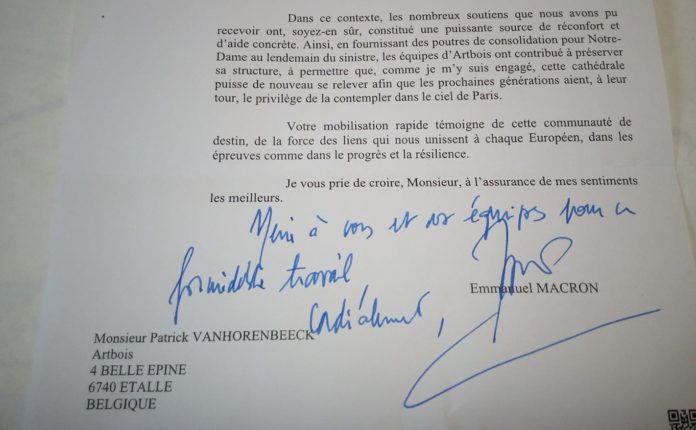 Dans ce contexte, les nombreux soutiens que nous avons pu
recevoir ont, soyez-en sûr, constitué une puissante source de réconfort et
d'aide concrète. Ainsi, en fournissant des poutres de consolidation pour Notre-
Dame au lendemain du sinistre, les équipes d'Artbois ont contribué à préserver
sa structure, à permettre que, comme je m'y suis engagé, cette cathédrale
puisse de nouveau se relever afin que les prochaines générations aient, à leur
tour, le privilège de la contempler dans le ciel de Paris.
Votre mobilisation rapide témoigne de cette communauté de
destin, de la force des liens qui nous unissent à chaque Européen, dans les
épreuves comme dans le progrès et la résilience.
Je vous prie de croire, Monsieur, à l'assurance de mes sentiments
les meilleurs.
Merci à vous et vos équipes pour ce
formidable travail,
Cordialement,
Emmanuel MACRON
Monsieur Patrick VANHORENBEECK
Artbois
4 BELLE EPINE
6740 ETALLE
BELGIQUE